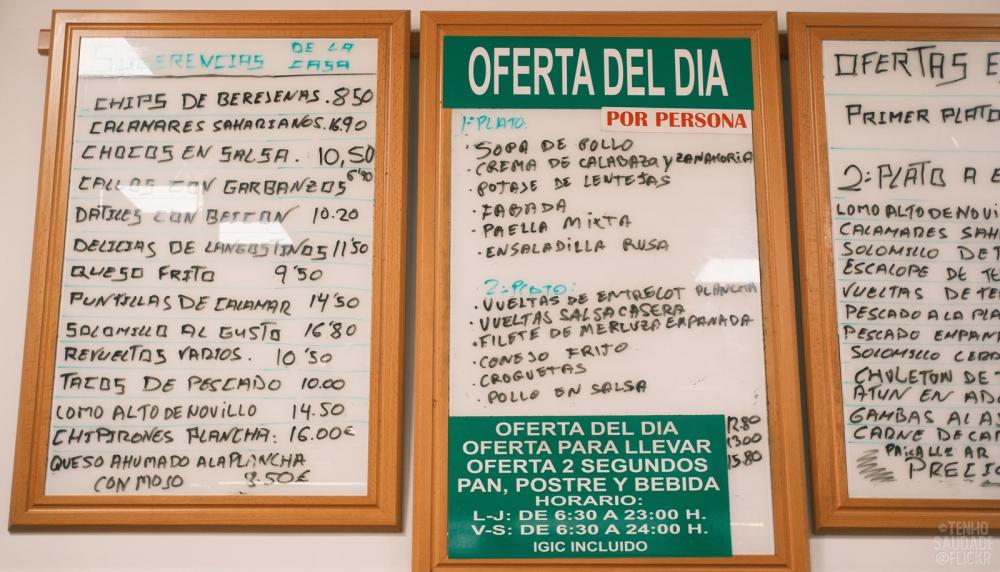 SUGERENCIAS DE LA CASA
CHIPS DE BEREJENAS. 8'50
CALAMARES SAHARIANOS. 16.90
CHOCOS EN SALSA. 10,50
CALLOS CON GARBANZOS 6'90
DATILES CON BEICON 10.20
DELICIAS DE LANGOSTINOS 11'50
QUESO FRITO 9'50
PUNTILLAS DE CALAMAR 14'50
SOLOMILLO AL GUSTO 16'80
REVUELTOS VARIOS. 10'50
TACOS DE PESCADO 10.00
LOMO ALTO DE NOVILLO 14.50
CHIPIRONES PLANCHA: 16.00€
QUESO AHUMADO A LA PLANCHA
CON MOJO 8.50€
OFERTA DEL DIA
POR PERSONA
1º PLATO:
· SOPA DE POLLO
· CREMA DE CALABAZA Y ZANAHORIA
· POTAJE DE LENTEJAS
· FABADA
· PAELLA MIXTA
· ENSALADILLA RUSA
2º PLATO:
· VUELTAS DE ENTRECOT PLANCHA
· VUELTAS SALSA CASERA
· FILETE DE MERLUZA EMPANADA
· CONEJO FRITO
· CROQUETAS
· POLLO EN SALSA
OFERTA DEL DIA 12.80
OFERTA PARA LLEVAR 13.00
OFERTA 2 SEGUNDOS 15.80
PAN, POSTRE Y BEBIDA
HORARIO:
L-J: DE 6:30 A 23:00 H.
V-S: DE 6:30 A 24:00 H.
IGIC INCLUIDO
OFERTAS E
PRIMER PLATO
2º PLATO A E
LOMO ALTO DE NOVI
CALAMARES SAH
SOLOMILLO DE T
ESCALOPE DE TE
VUELTAS DE TE
PESCADO A LA PLA
PESCADO EMPAN
SOLOMILLO CERD
CHULETON DE T
ATUN EN ADO
GAMBAS AL A
CARNE DE CA
PAR LLE AR
PRECIO
©TENHO
SAUDADE
@FLICKR